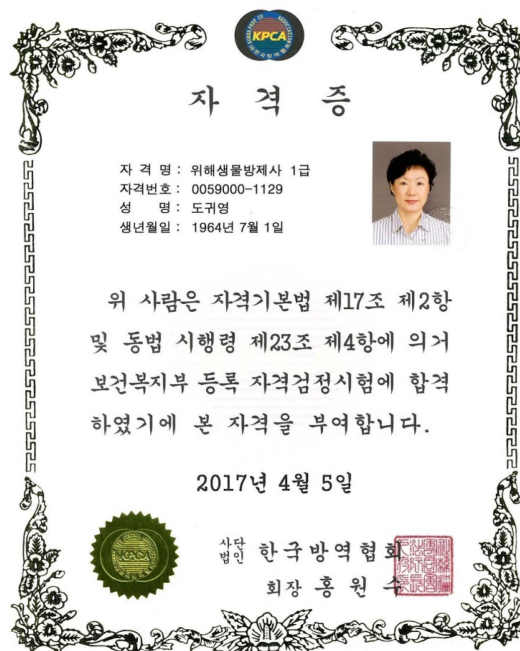 KPCA
자 격 증
자 격 명 : 위해생물방제사 1급
자격번호 : 0059000-1129
성 명 : 도귀영
생년월일 : 1964년 7월 1일
위 사람은 자격기본법 제17조 제2항
및 동법 시행령 제23조 제4항에 의거
보건복지부 등록 자격검정시험에 합격
하였기에 본 자격을 부여합니다.
2017년 4월 5일
사단법인 한국방역협회
회장 홍 원 수
KPCA